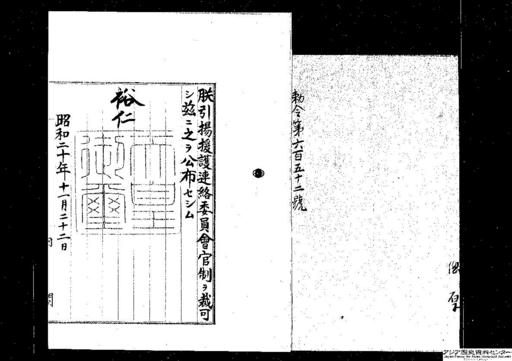 勅令第六百五十二號
朕引揚援護連絡委員會官制ヲ裁可
シ茲ニ之ヲ公布セシム
裕仁
天皇御璽
昭和二十年十一月二十二日
内閣
アジア歴史資料センター